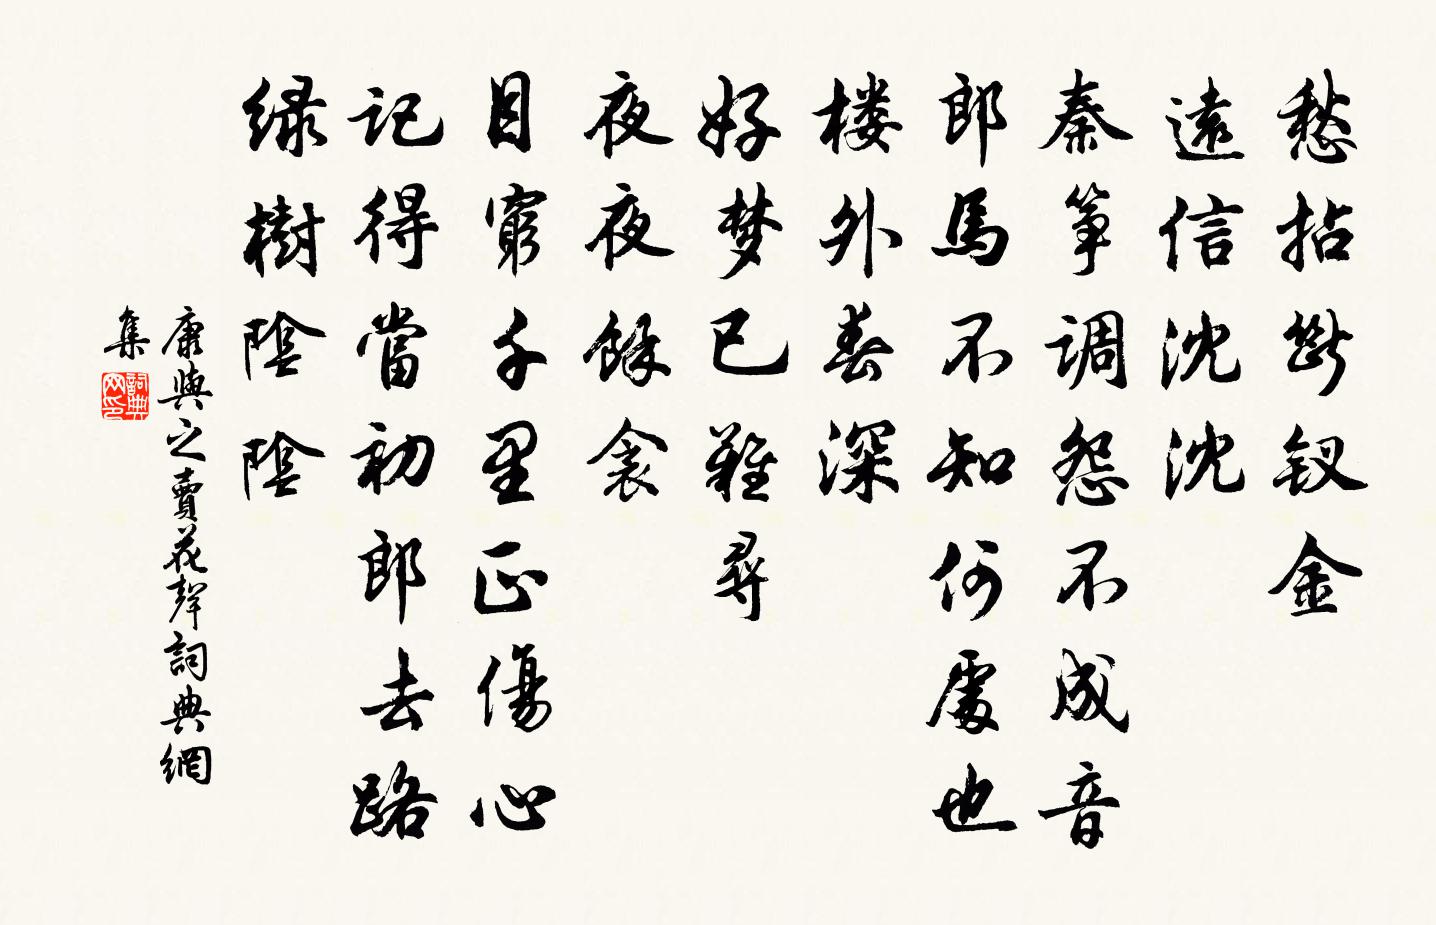 愁拈斷釵金
遠信沈沈
秦箏調怨不成音
郎馬不知何處也
楼外春深
好梦已難尋
夜夜餘衾
目窮千里正傷心
記得當初郎去路
绿樹陰陰
康與之賣花聲詞典網
集
詞典
网印